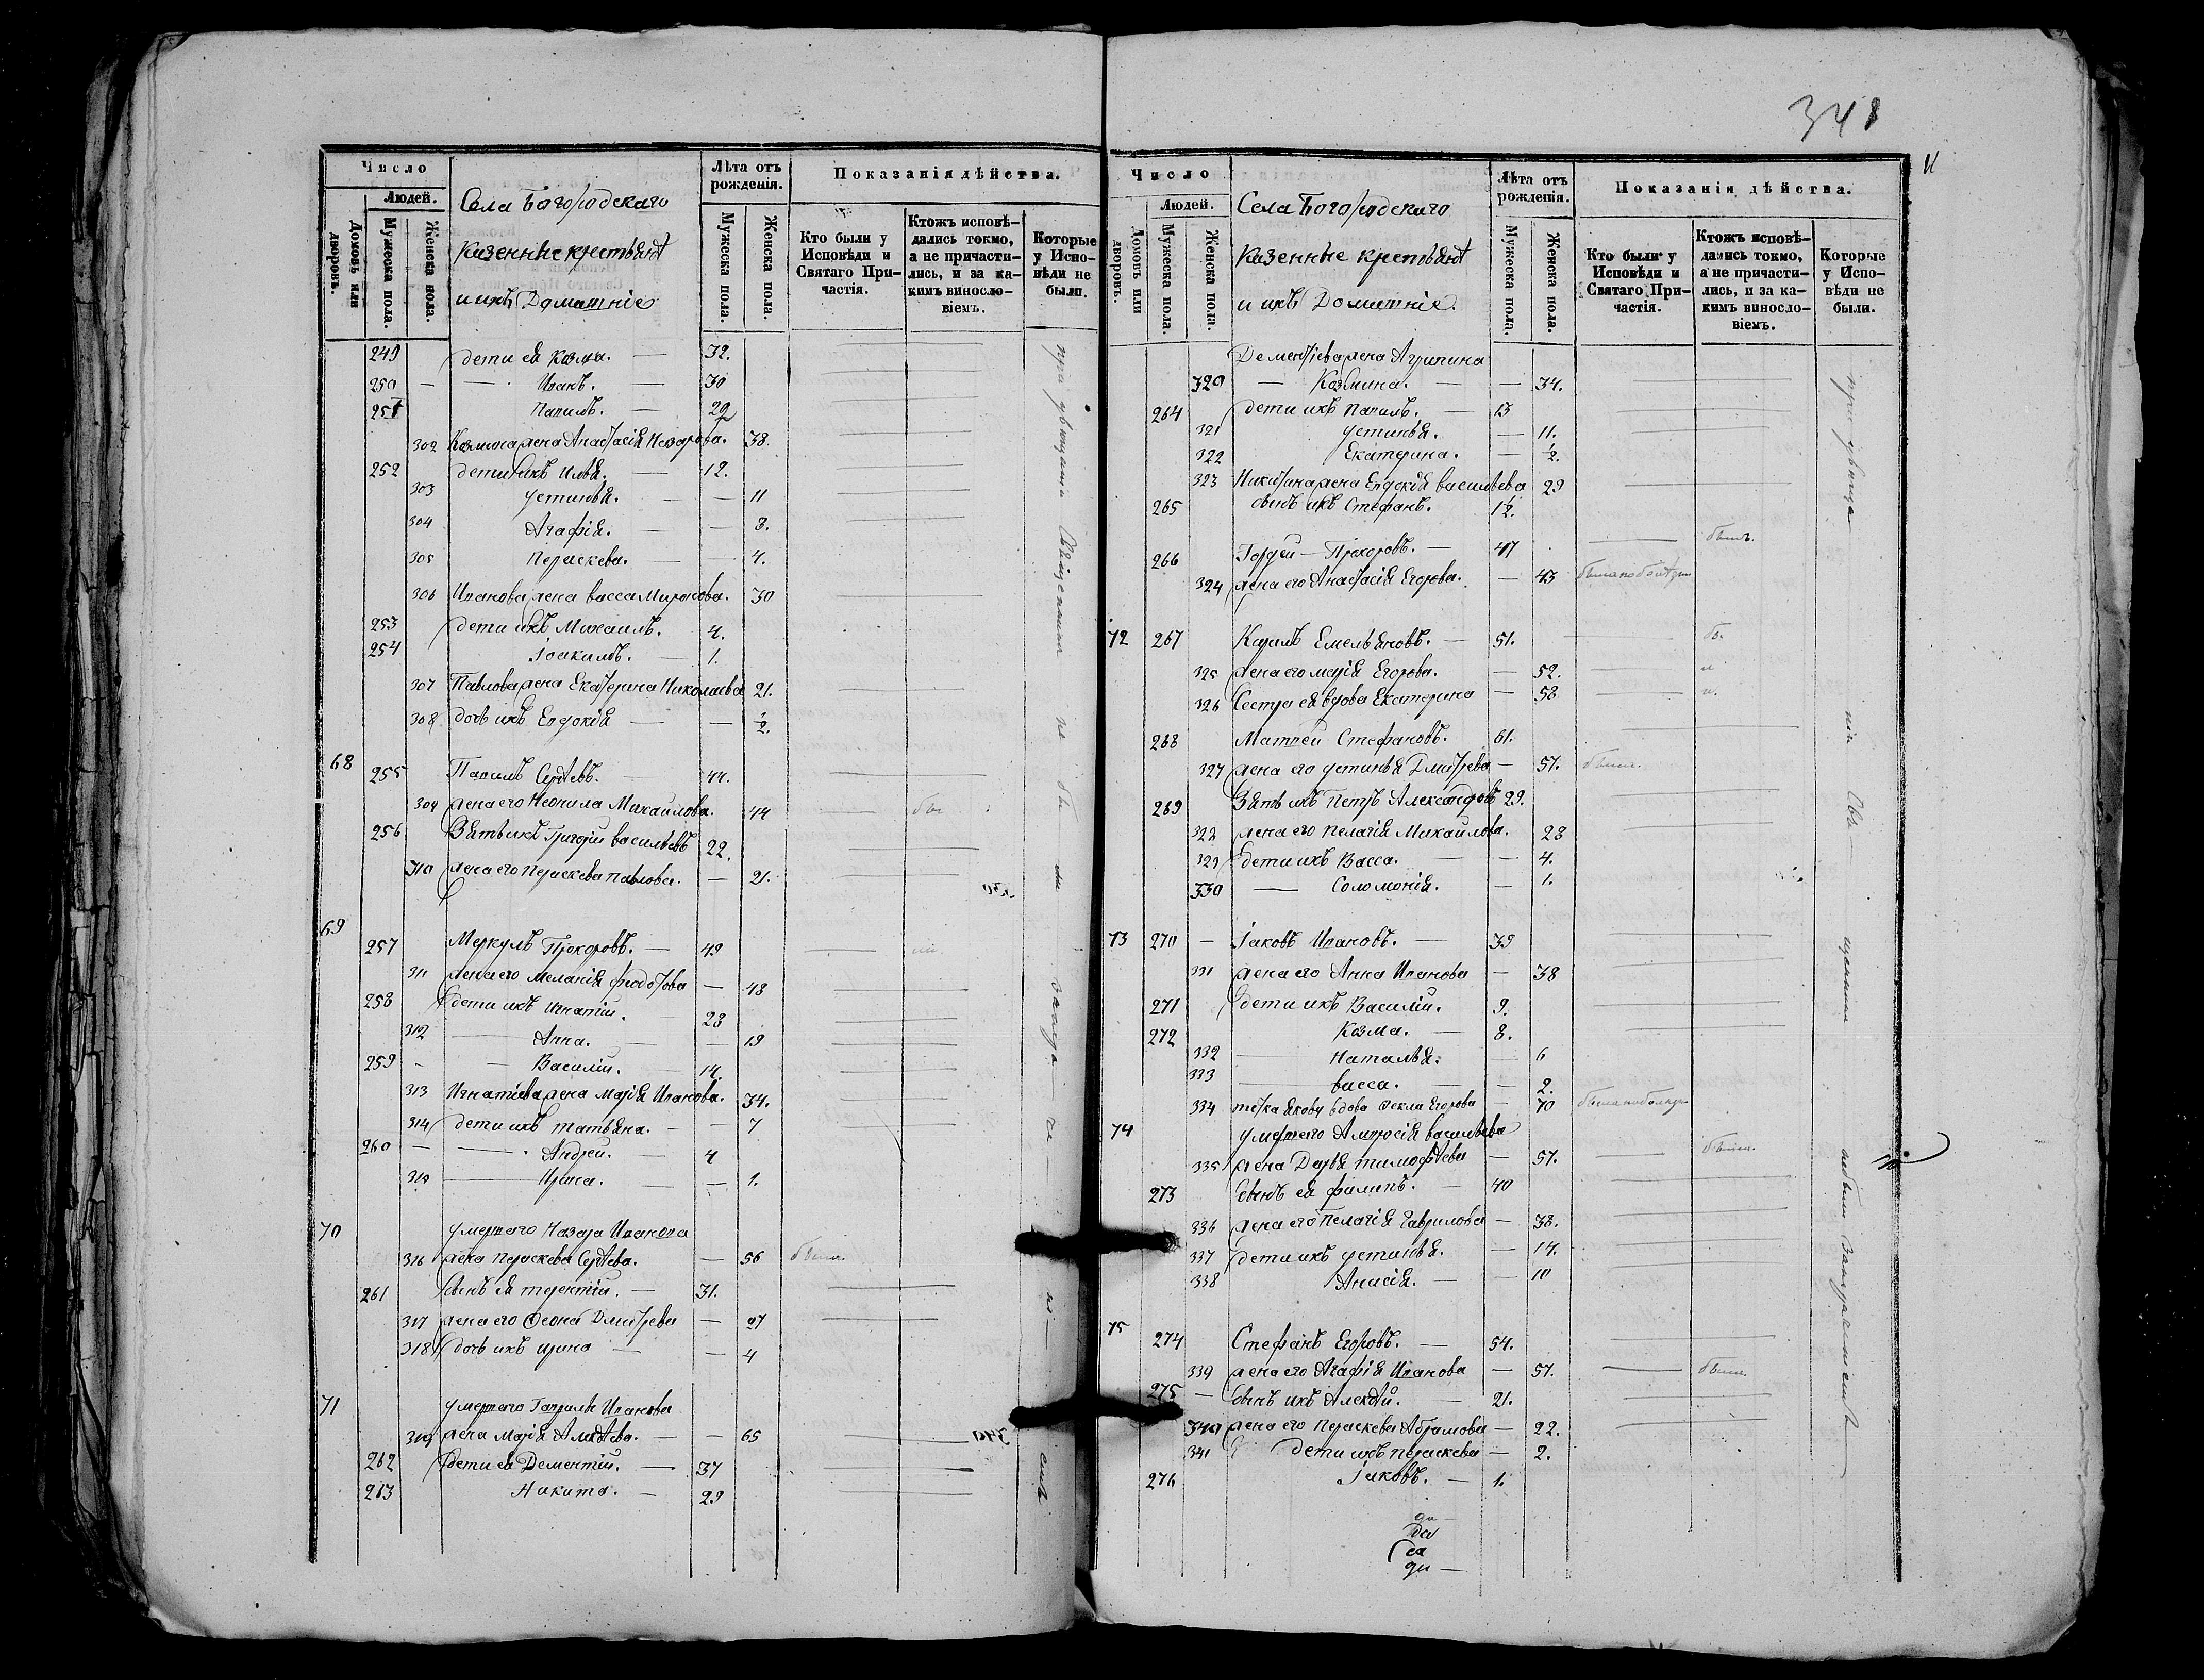 348
Число
Людей.
Домовъ или дворовъ.
Мужеска пола.
Женска пола.
Села Богородскаго
Казенные крестьянѣ
и ихъ Домашніе
Лѣта отъ рожденія.
Мужеска пола.
Женска пола.
Показанія дѣйства.
Кто были у Исповѣди и Святаго Причастія.
Ктожъ исповѣдались токмо, а не причастились, и за какимъ винословіемъ.
Которые у Исповѣди не были.
249 дети ея Козма. — 32.
250 — — Иванъ. — 30
251 Павилъ. — 29
302 Козмина жена Анастасія Назарова. 38.
252 дети ихъ Илья. — 12.
303 Устинья. — — 11
304 Агафія. — — 8.
305 Пераскева. — — 4.
306 Иванова жена Васса Миронова. 30
253 дети ихъ Михаилъ. 4.
254 Іоакимъ. — 1.
307 Павлова жена Екатерина Николаева 21.
308 дочь ихъ Евдокія — — ½.
68 255 Павилъ Сергѣевъ. — 44.
309 жена его Неонила Михайлова. 44 бы
256 Зять ихъ Григорій Васильевъ 22.
310 жена его Пераскева Павлова. — 21.
69 257 Меркулъ Прохоровъ. — 49
311 жена его Меланія Федотова — 48
258 дети ихъ Игнатій. — 28
312 — Анна. — — 19
259 — — Василій. — 14.
313 Игнатіева жена Марія Иванова. 34.
314 дети ихъ Татьяна. — — 7
260 — — Андрей. — 4
315 — Ирина. — — 1.
70 умершаго Назара Иванова
316 жена Пераскева Сергѣева. — 56 была.
261 Сынъ ея Терентій. — 31.
317 жена его Феона Дмитрева — 27
318 дочь ихъ Ирина — — 4
71 умершаго Гаврила Иванова
319 жена Марія Алексѣева. — — 65
262 дети ея Дементій. — 37
263 Никита. — 29
Число
Людей.
Домовъ или дворовъ.
Мужеска пола.
Женска пола.
Села Богородскаго
Казенные крестьянѣ
и ихъ Домашніе.
Лѣта отъ рожденія.
Мужеска пола.
Женска пола.
Показанія дѣйства.
Кто были у Исповѣди и Святаго Причастія.
Ктожъ исповѣдались токмо, а не причастились, и за какимъ винословіемъ.
Которые у Исповѣди не были.
Дементіева жена Агрипина
320 — Козмина. — — 34.
264 дети ихъ Павилъ. — 13
321 Устинья. — 11.
322 Екатерина. — ½.
323 Никитина жена Евдокія Васильева 29
265 сынъ ихъ Стефанъ. 1½.
266 Гордей — Прохоровъ. — 47 былъ.
324 жена его Анастасія Егорова. — 43
72 267 Кирилъ Емельяновъ. — 51. бы
325 жена его Марія Егорова. — 52.
326 Сестра ея вдова Екатерина — 58
268 Матвей Стефановъ. 61.
327 жена его Устинья Дмитрева — 57. была.
269 Зять ихъ Петръ Александровъ 29.
328 жена его Пелагія Михайлова. 28
329 дети ихъ Васса. — — 4.
330 — Соломонія. — 1.
73 270 — Іаковъ Ивановъ. — 39
331 жена его Анна Иванова — 38
271 дети ихъ Василій. 9.
272 Козма. — 8.
332 — Наталья. — 6
333 — Васса. — — 2.
334 тетка Якову вдова Фекла Егорова — 70
74 умершаго Амвросія Васильева
335 жена Дарья Тимофѣева — 57. была.
273 Сынъ ея Филипъ. — 40
336 жена его Пелагія Гаврилова — 38.
337 дети ихъ Устинья. — 14.
338 Анисія. — — 10
75 274 Стефанъ Егоровъ. — 54.
339 жена его Агафія Иванова — 57. была.
275 — Сынъ ихъ Алексѣй. — 21.
340 жена его Пераскева Абрамова — 22.
341 дети ихъ Пераскева — 2.
276 Іаковъ. — 1.